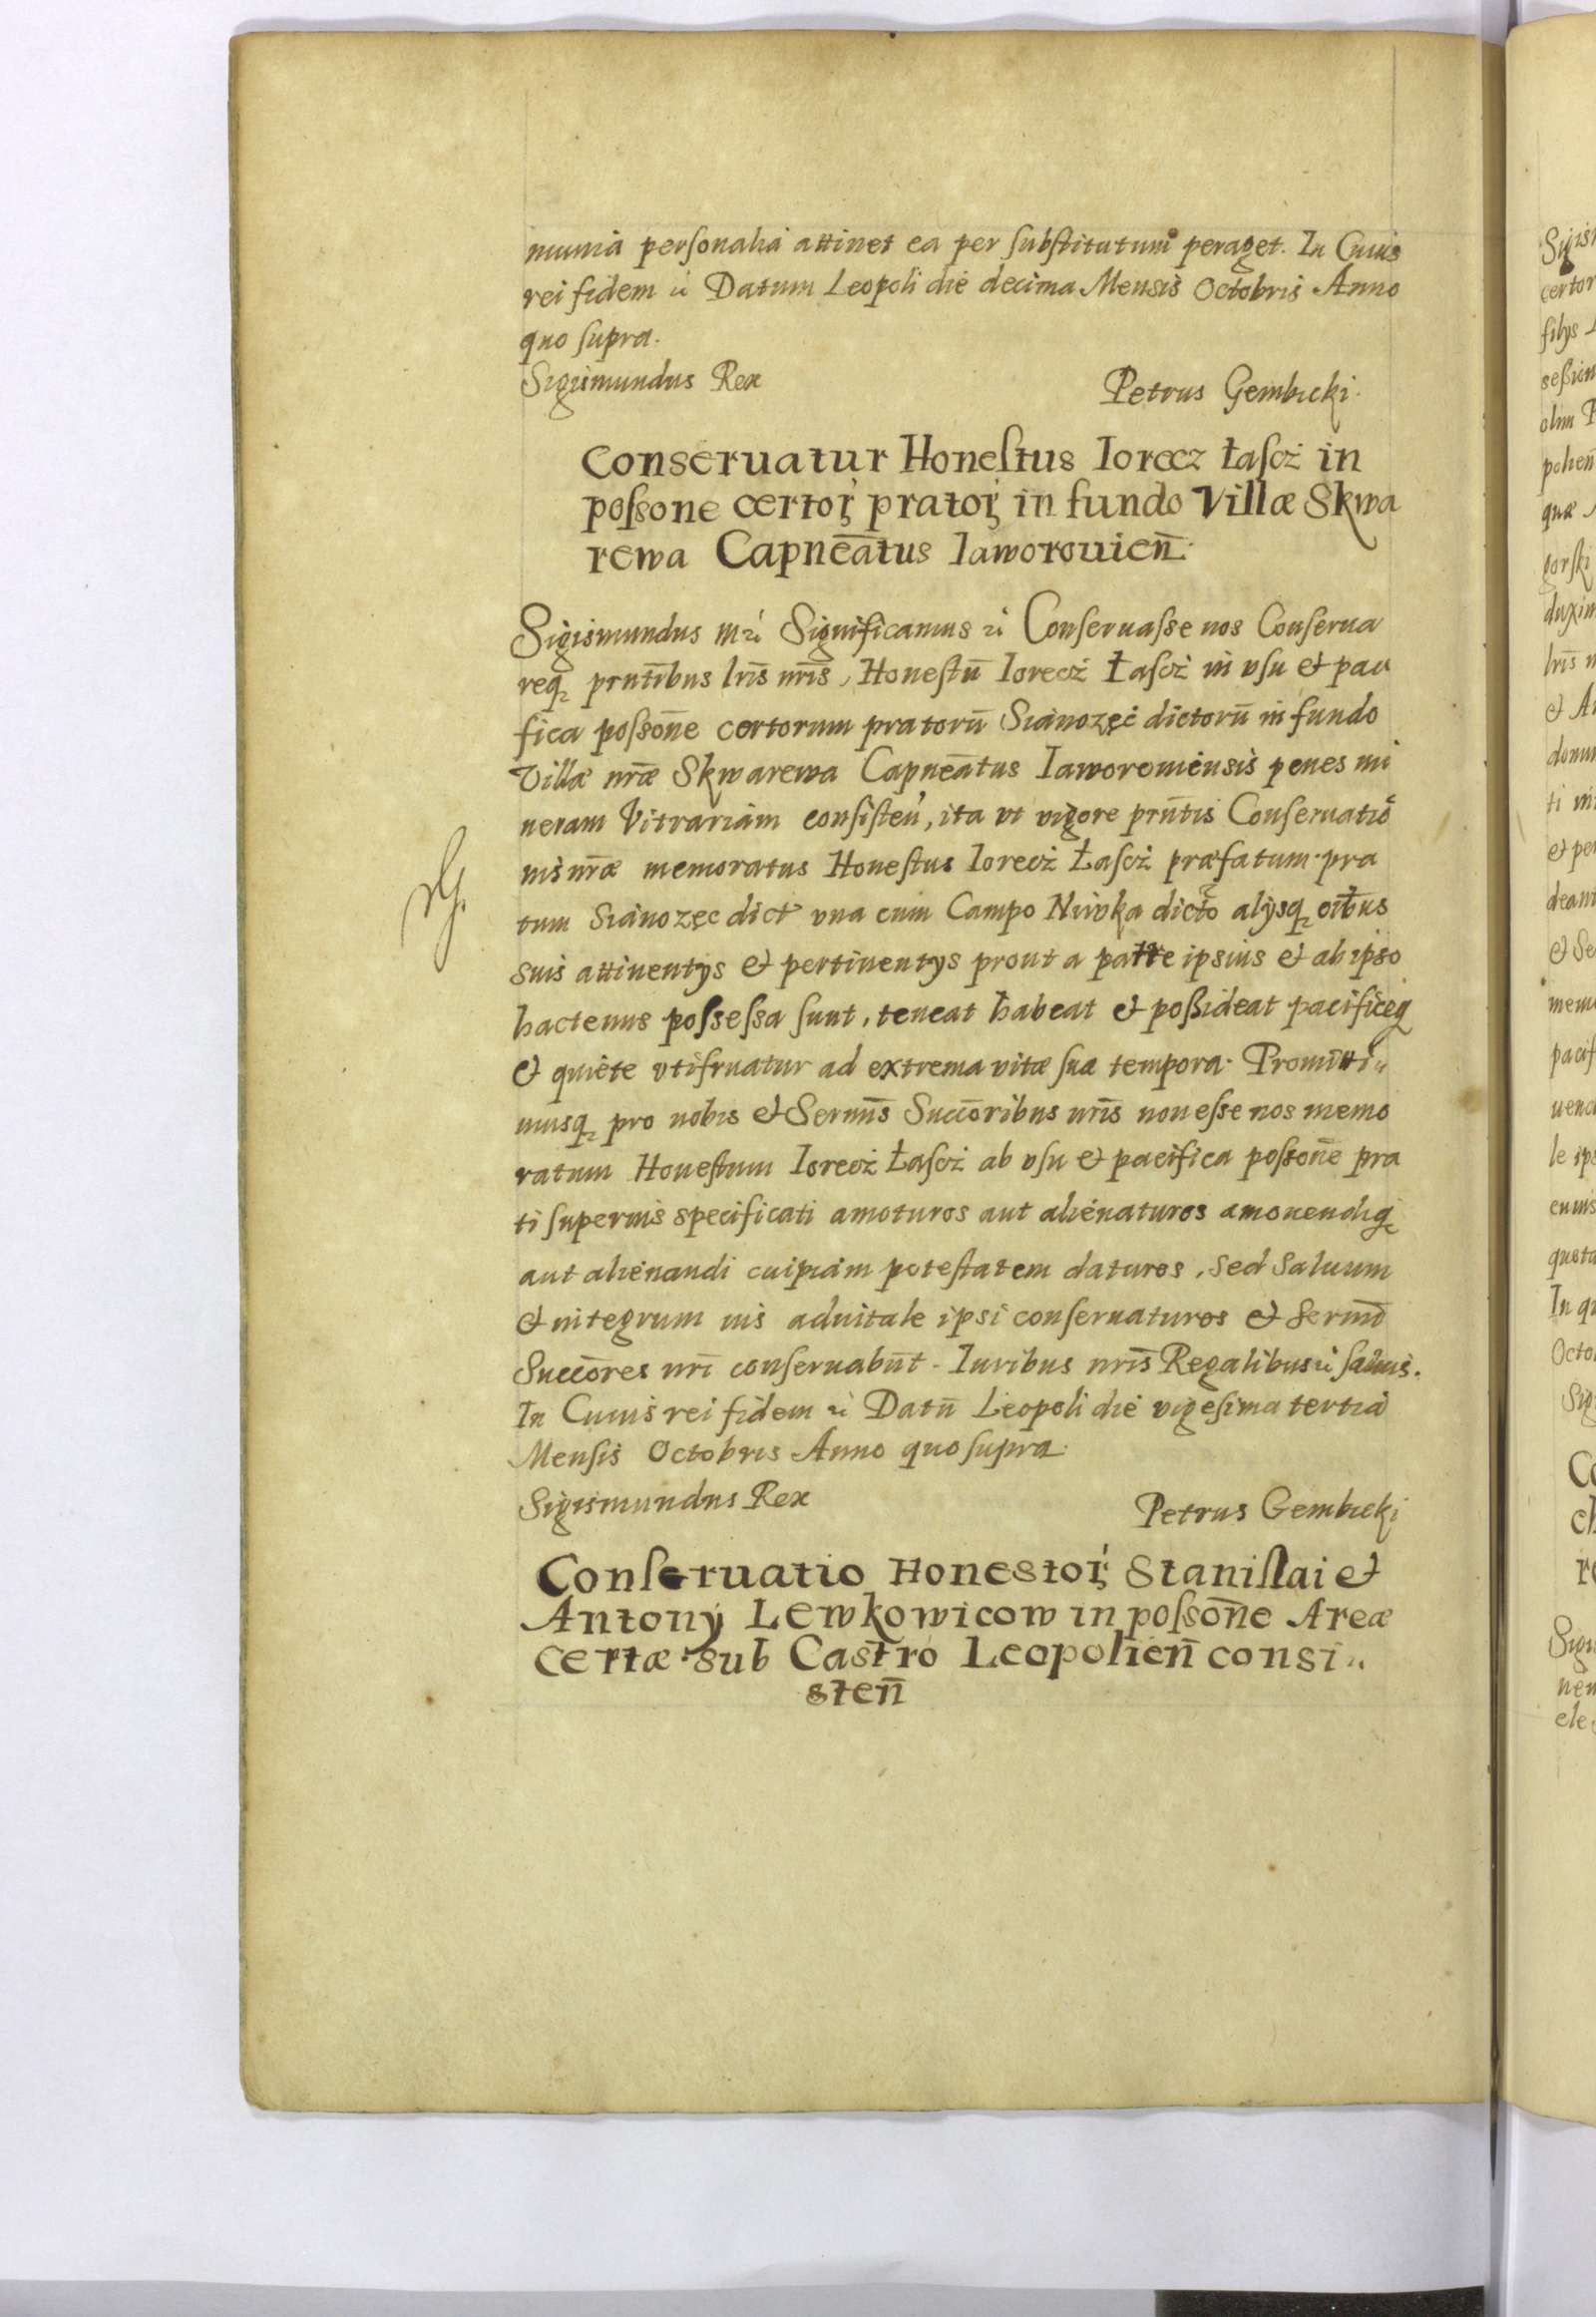 munia personalia attinet ea per substitutum peraget. In Cuius
rei fidem ꝛć Datum Leopoli die decima Mensis Octobris Anno
quo supra.
Sigismundus Rex
Petrus Gembicki.
Conseruatur Honestus Iorecz Łascż in
possone certoꝝ pratoꝝ in fundo Villæ Skwa
rewa Capneātus Iaworouien̄.
Sigismundus mꝛć Significamus ꝛć Conseruasse nos Conserua
reqꝫ prn̄tibus lrīs nrīs, Honestū Iorecż Łascż in vsu et paci
fica possōne certorum pratorū Sianozęć dictorū in fundo
Villæ nrǣ Skwarewa Capneātus Iaworouiensis penes mi
neram Vitrariam consisten̄, ita vt vigore prn̄tis Conseruatio
nis nrǣ memoratus Honestus Iorecż Łascż præfatum pra
tum Sianozęc dict vna cum Campo Niwka dicto alijsqꝫ oībus
suis attinentijs et pertinentijs prout a patre ipsius et ab ipso
hactenus possessa sunt, teneat habeat et possideat pacificeqꝫ
et quiete vtifruatur ad extrema vitæ suæ tempora. Promitti„
musqꝫ pro nobis et Sermīs Succōribus nrīs non esse nos memo
ratum Honestum Iorecż Łascż ab vsu et pacifica possōne pra
ti superius specificati amoturos aut alienaturos amouendiqꝫ
aut alienandi cuipiam potestatem daturos, sed saluum
et integrum ius aduitale ipsi conseruaturos et Sermī
Succōres nrī conseruabūt. Iuribus nrīs Regalibus ꝛć saluis.
In Cuius rei fidem ꝛć Datū Leopoli die vigesima tertia
Mensis Octobris Anno quo supra.
Sigismundus Rex
Petrus Gembicki
Conseruatio Honestoꝝ Stanislai et
Antonij Lewkowicow in possōne Areæ
certæ sub Castro Leopolien̄ consi„
sten̄